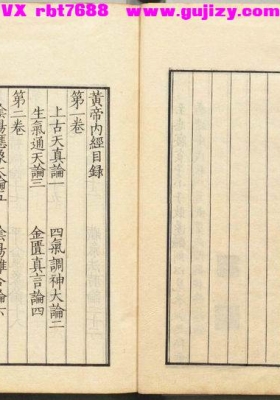 VX rbt7688  www.gujizy.com
黃帝內經目錄
第一卷
上古天真論一　四氣調神大論二
生氣通天論三　金匱真言論四
第二卷
陰陽應象大論五　陰陽離合論六